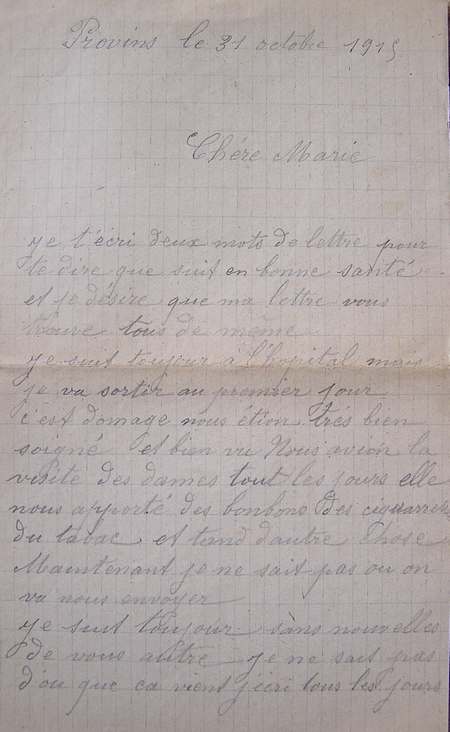 Provins le 31 octobre 1915
Chére Marie
je t'écri deux mots de lettre pour
te dire que suit en bonne santé
et je désire que ma lettre vous
trouve tous de même
je suit toujour à l'hopital mais
je va sortir au premier jour
c'est domage nous étion trés bien
soigné et bien vu Nous avion la
visite des dames tout les jours elle
nous apporté des bonbons des ciguarrets
du tabac et tand d'autre chose
Maintenant je ne sait pas ou on
va nous envoyer
je suit toujour sans nouvelles
de vous autre je ne sait pas
d'ou que ca vient j'écri tous les jours